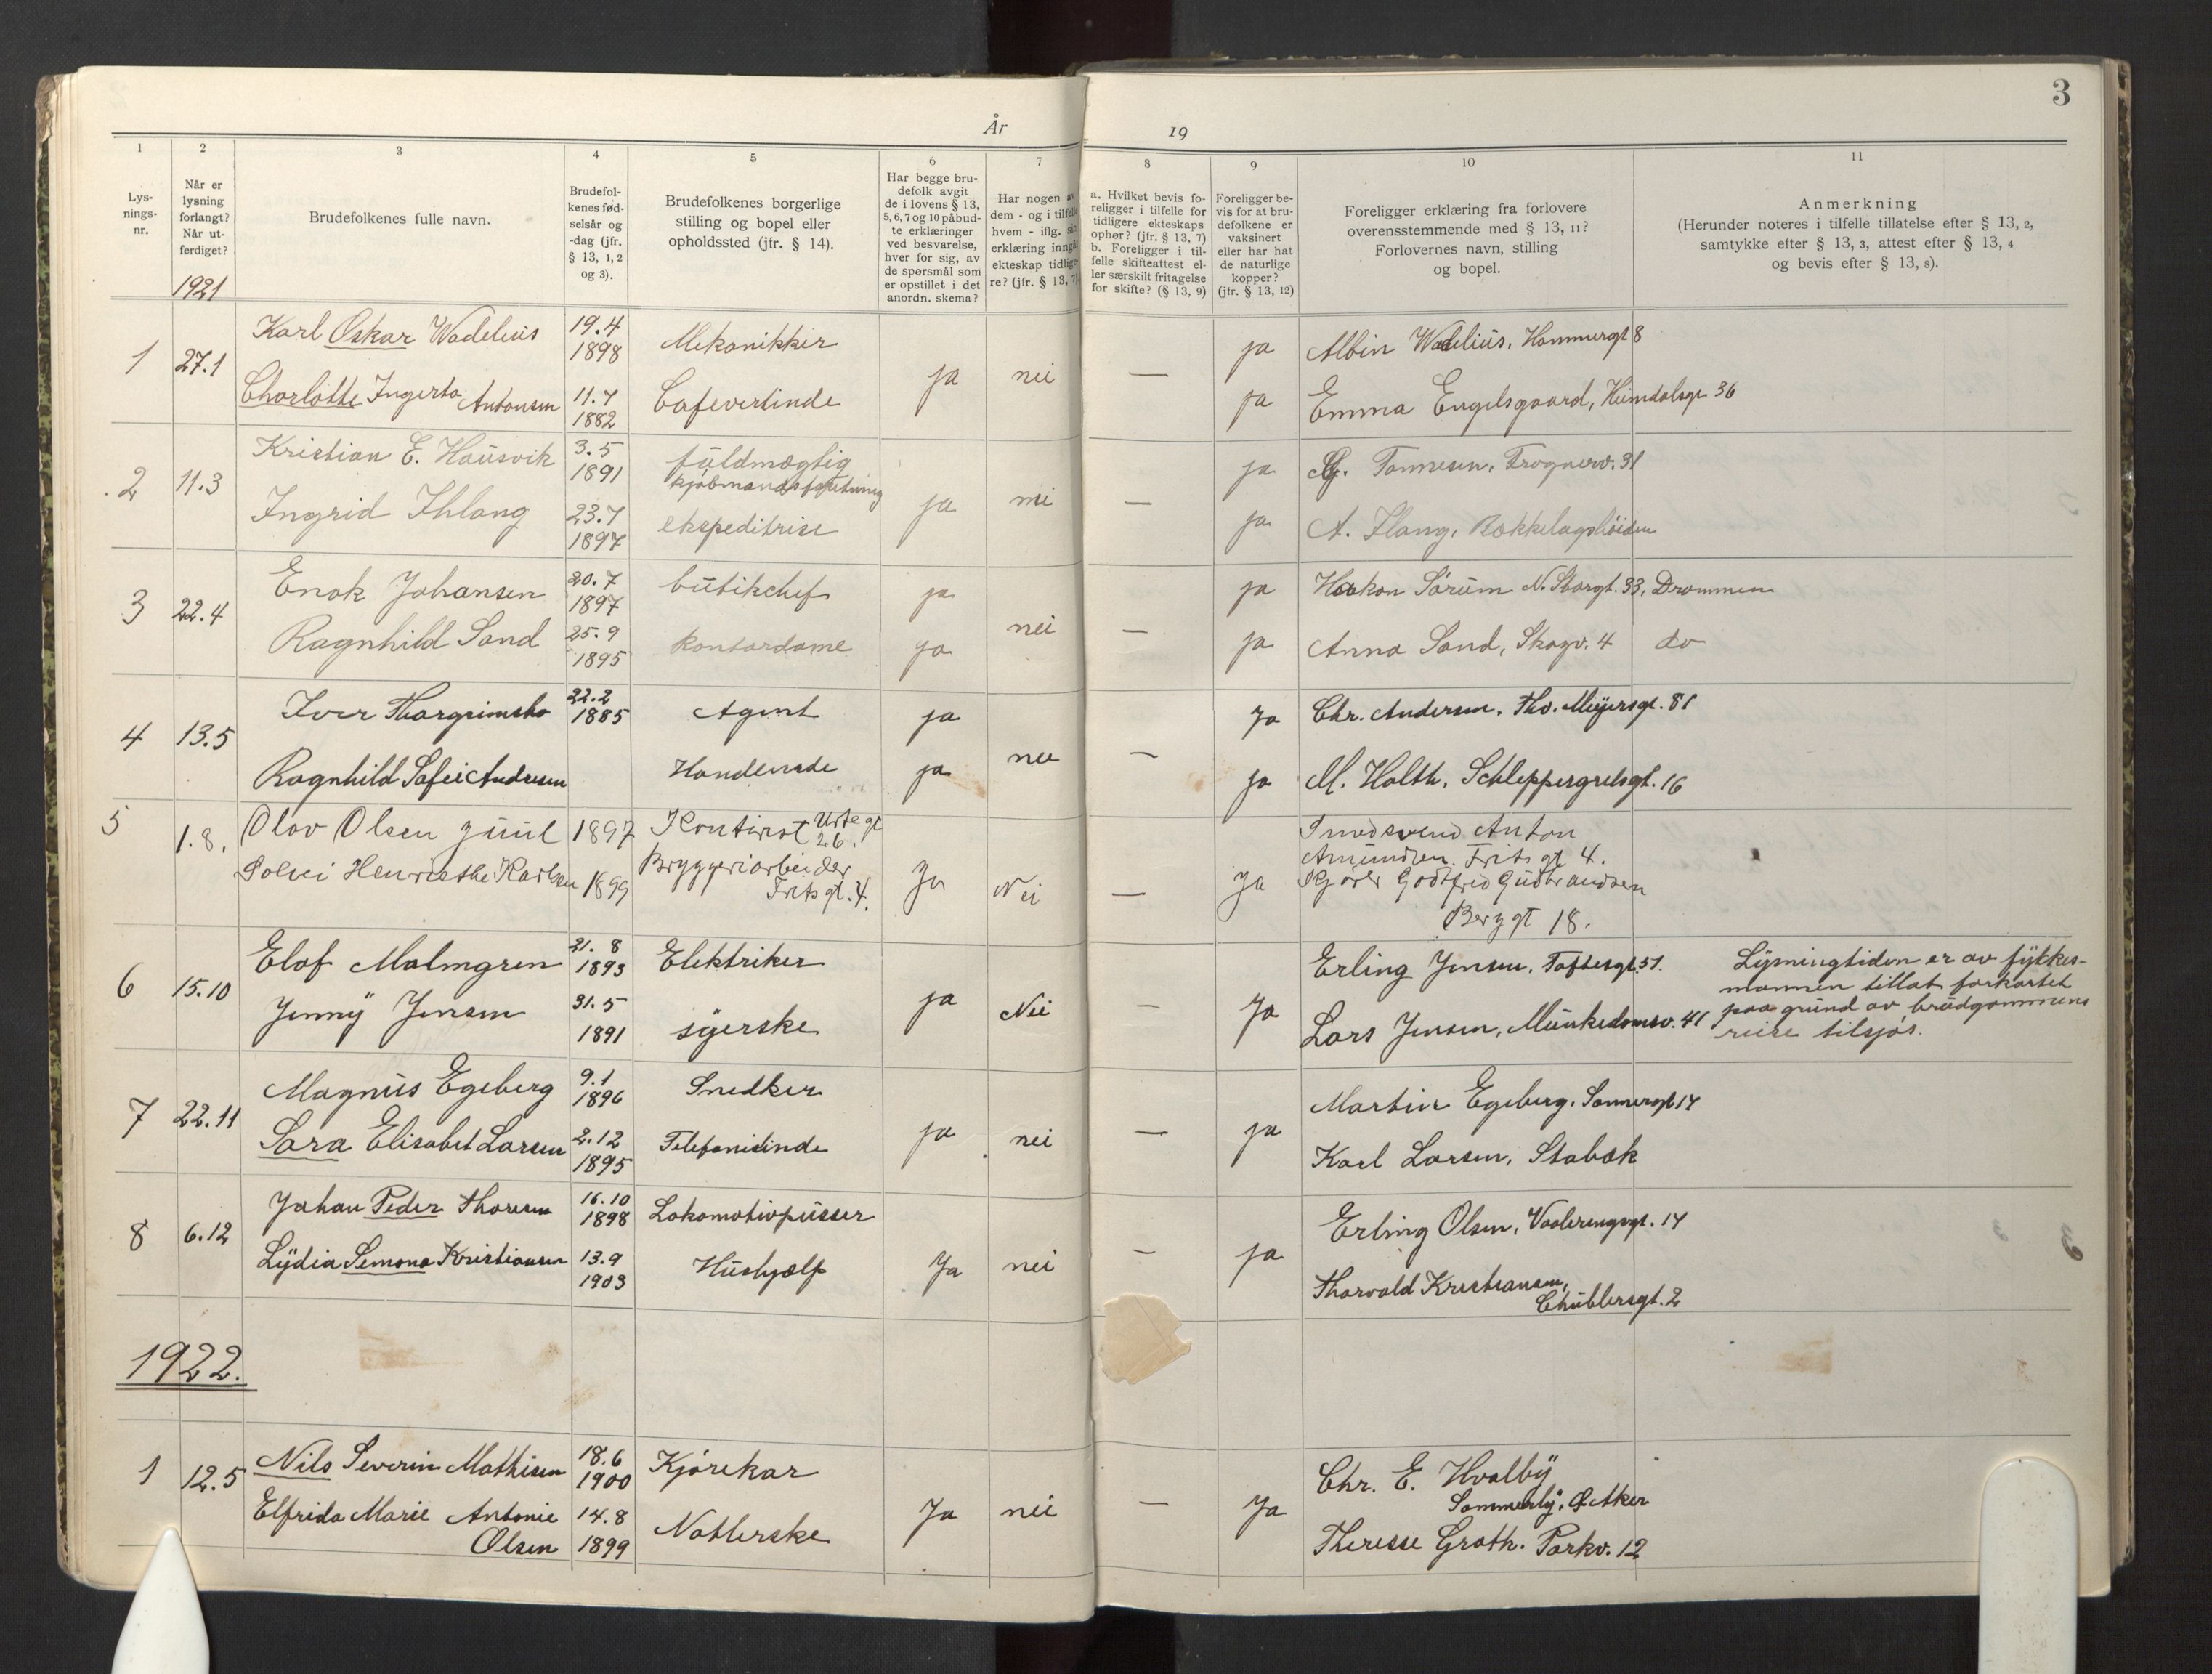 3
År 19
1 2 3 4 5 6 7 8 9 10 11
Lys-
nings-
nr.
Når er
lysning
forlangt?
Når ut-
ferdiget?
1921
Brudefolkenes fulle navn.
Brudefol-
kenes fød-
selsår og
-dag (jfr.
§ 13, 1, 2
og 3).
Brudefolkenes borgerlige
stilling og bopel eller
opholdssted (jfr. § 14).
Har begge bru-
defolk avgit
de i lovens § 13,
5, 6, 7 og 10 påbud-
te erklæringer
ved besvarelse,
hver for sig, av
de spørsmål som
er opstillet i det
anordn. skema?
Har nogen av
dem - og i tilfelle
hvem - iflg. sin
erklæring inngått
ekteskap tidlige-
re? (jfr. § 13, 7)
a. Hvilket bevis fo-
religger i tilfelle for
tidligere ekteskaps
ophør? (jfr. § 13, 7)
b. Foreligger i til-
felle skifteattest el-
ler særskilt fritagelse
for skifte? (§ 13, 9)
Foreligger be-
vis for at bru-
defolkene er
vaksinert
eller har hat
de naturlige
kopper?
(jfr. § 13, 12)
Foreligger erklæring fra forlovere
overensstemmende med § 13, 11?
Forlovernes navn, stilling
og bopel.
Anmerkning
(Herunder noteres i tilfelle tillatelse efter § 13, 2,
samtykke efter § 13, 3, attest efter § 13, 4
og bevis efter § 13, 8).
1 27.1
Karl Oskar Wadelius 19.4 1898 Mekanikker ja Albin Wadelius, Hammergt 8
Charlotte Ingerta Antonsen 11.7 1882 Cafevertinde ja nei — ja Emma Engelsgaard, Heimdalsgt 36
2 11.3
Kristian E. Hausvik 3.5 1891 fuldmægtig kjøbmandsforretning ja Tønnesen, Frognerv. 31
Ingrid Ihlang 23.7 1897 ekspeditrise ja nei — ja A. Ilang, Bækkelagshøiden
3 22.4
Enok Johansen 20.7 1897 butikchef ja ja Haakon Sørum N. Storgt. 33, Drammen
Ragnhild Sand 25.9 1895 kontordame ja nei — ja Anna Sand, Skogv. 4 do
4 13.5
Iver Thorgrimsbo 22.2 1885 Agent ja Ja Chr. Andersen, Thv. Meyersgt. 81
Ragnhild Safei Andresen Handlende ja nei — ja M. Holth, Schleppegrelsgt. 16
5 1.8.
Olov Olsen Juul 1897 Kontirist Urtegt 26. Anton
Amundsen. Frits gt 4.
Solvei Henriette Karlsen 1899 Bryggeriarbeider Frits gt. 4. Ja Nei — Ja Godtfred Gudbrandsen
Berg gt 18.
6 15.10
Elof Malmgren 21.8 1893 Elektriker Erling Jensen, Toftesgt. 51.
Jenny Jensen 31.5 1891 syerske ja Nei — Ja Lars Jensen, Munkedamsv. 41
Lysningtiden er av fylkes-
mannen tillat forkortet
paa grund av brudgommens
reise tilsjøs.
7 22.11
Magnus Egeberg 9.1 1896 Snedker Martin Egeberg, Sannergt 14
Sara Elisabet Larsen 2.12 1895 Telefonistinde ja nei — ja Karl Larsen, Stabæk
8 6.12
Johan Peder Thoresen 16.10 1898 Lokomotivpusser Erling Olsen, Vaalerenggt. 14
Lydia Semona Kristiansen 13.9 1903 Hushjælp Ja nei — ja Thorvald Kristiansen,
Schüblersgt. 2
1922.
1 12.5
Nils Severin Mathisen 18.6 1900 Kjørekar Chr. E. Hvalby
Sommerly, Ø. Aker
Elfrida Marie Antonie
Olsen 14.8 1899 Natlerske Ja nei — Ja Theresse Groth. Parkv. 12